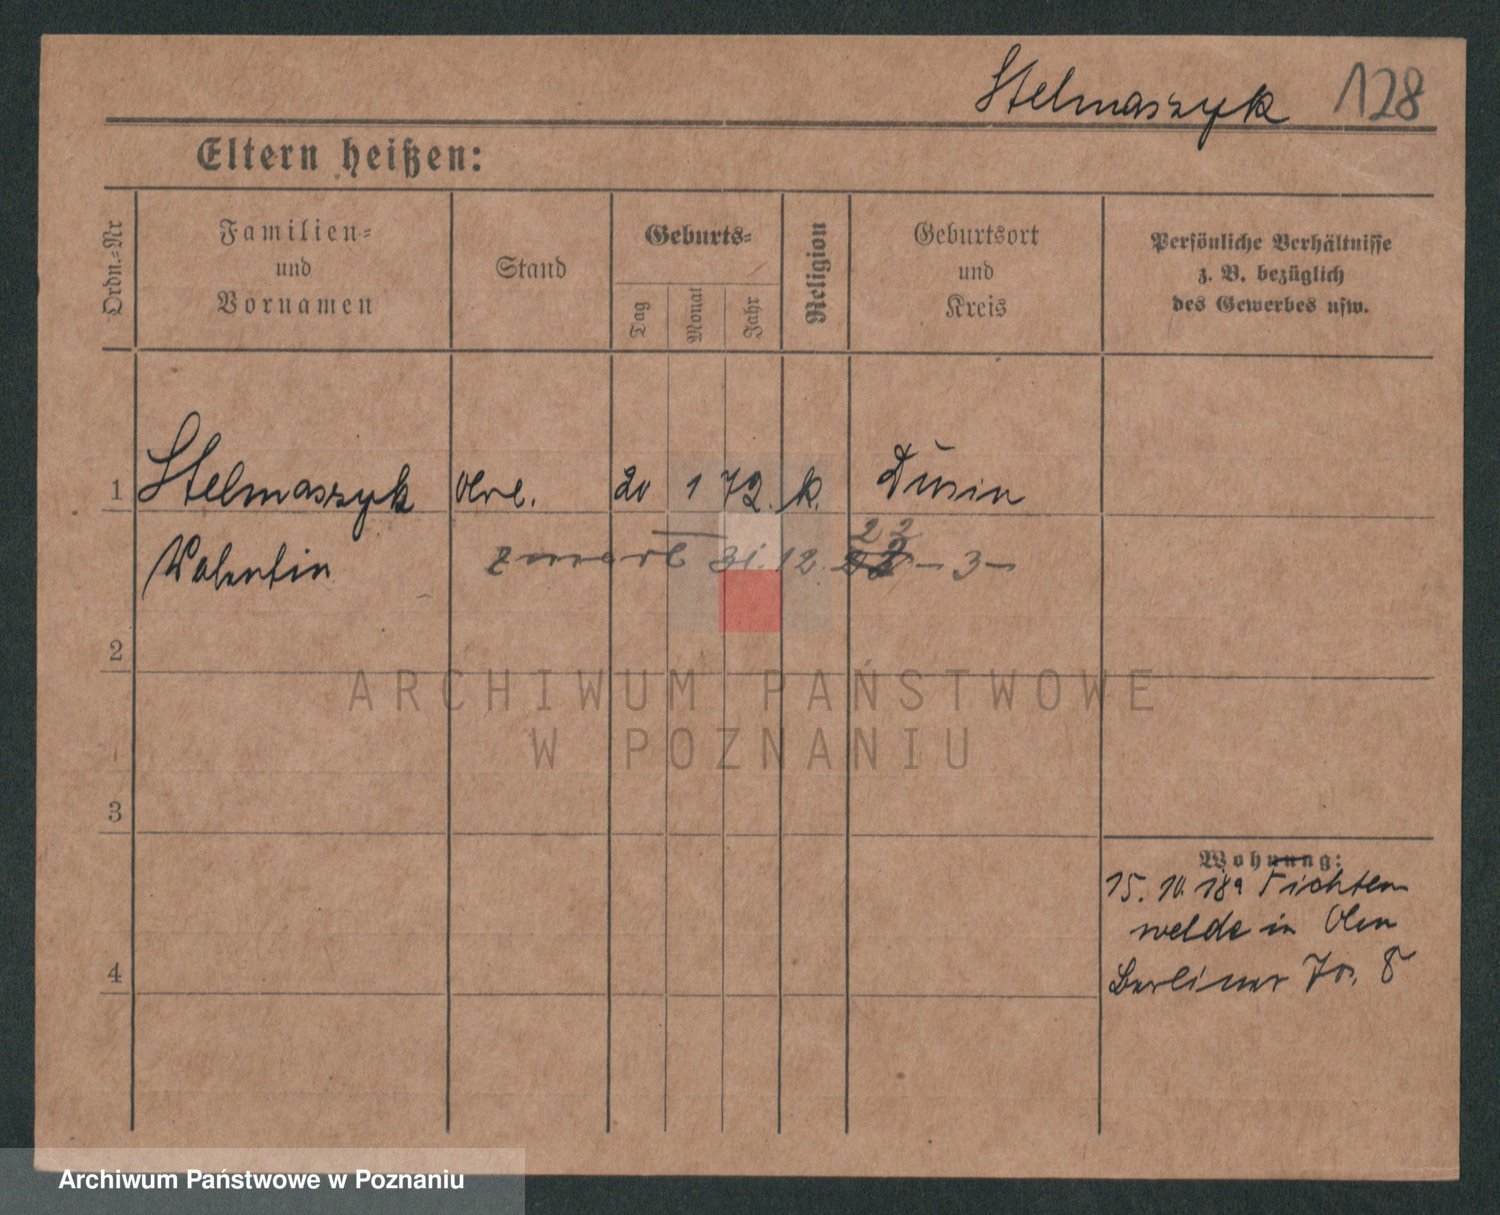 Stelmaszyk 128
Eltern heißen:
Ordn.-Nr
Familien-
und
Vornamen
Stand
Geburts-
Tag
Monat
Jahr
Religion
Geburtsort
und
Kreis
Persönliche Verhältnisse
z. B. bezüglich
des Gewerbes usw.
1 Stelmaszyk 20 1 72. k. Dusin
Valentin
zmarł 31.12. 22 - 3 -
2
3
4
Wohnung:
15. 10. Fichten
welde in
Berliner 8
ARCHIWUM PAŃSTWOWE
W POZNANIU
Archiwum Państwowe w Poznaniu